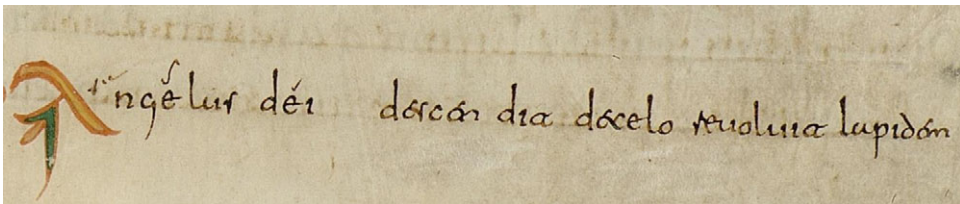 Angelus dei descendit decelo revolvit lapidem